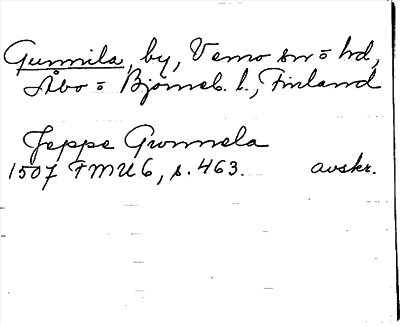 Gunnila, by, Vemo sn = hd,
Åbo = Björneb. l., Finland
Jeppe Gwnnela
1507 FMU 6, s. 463. avskr.